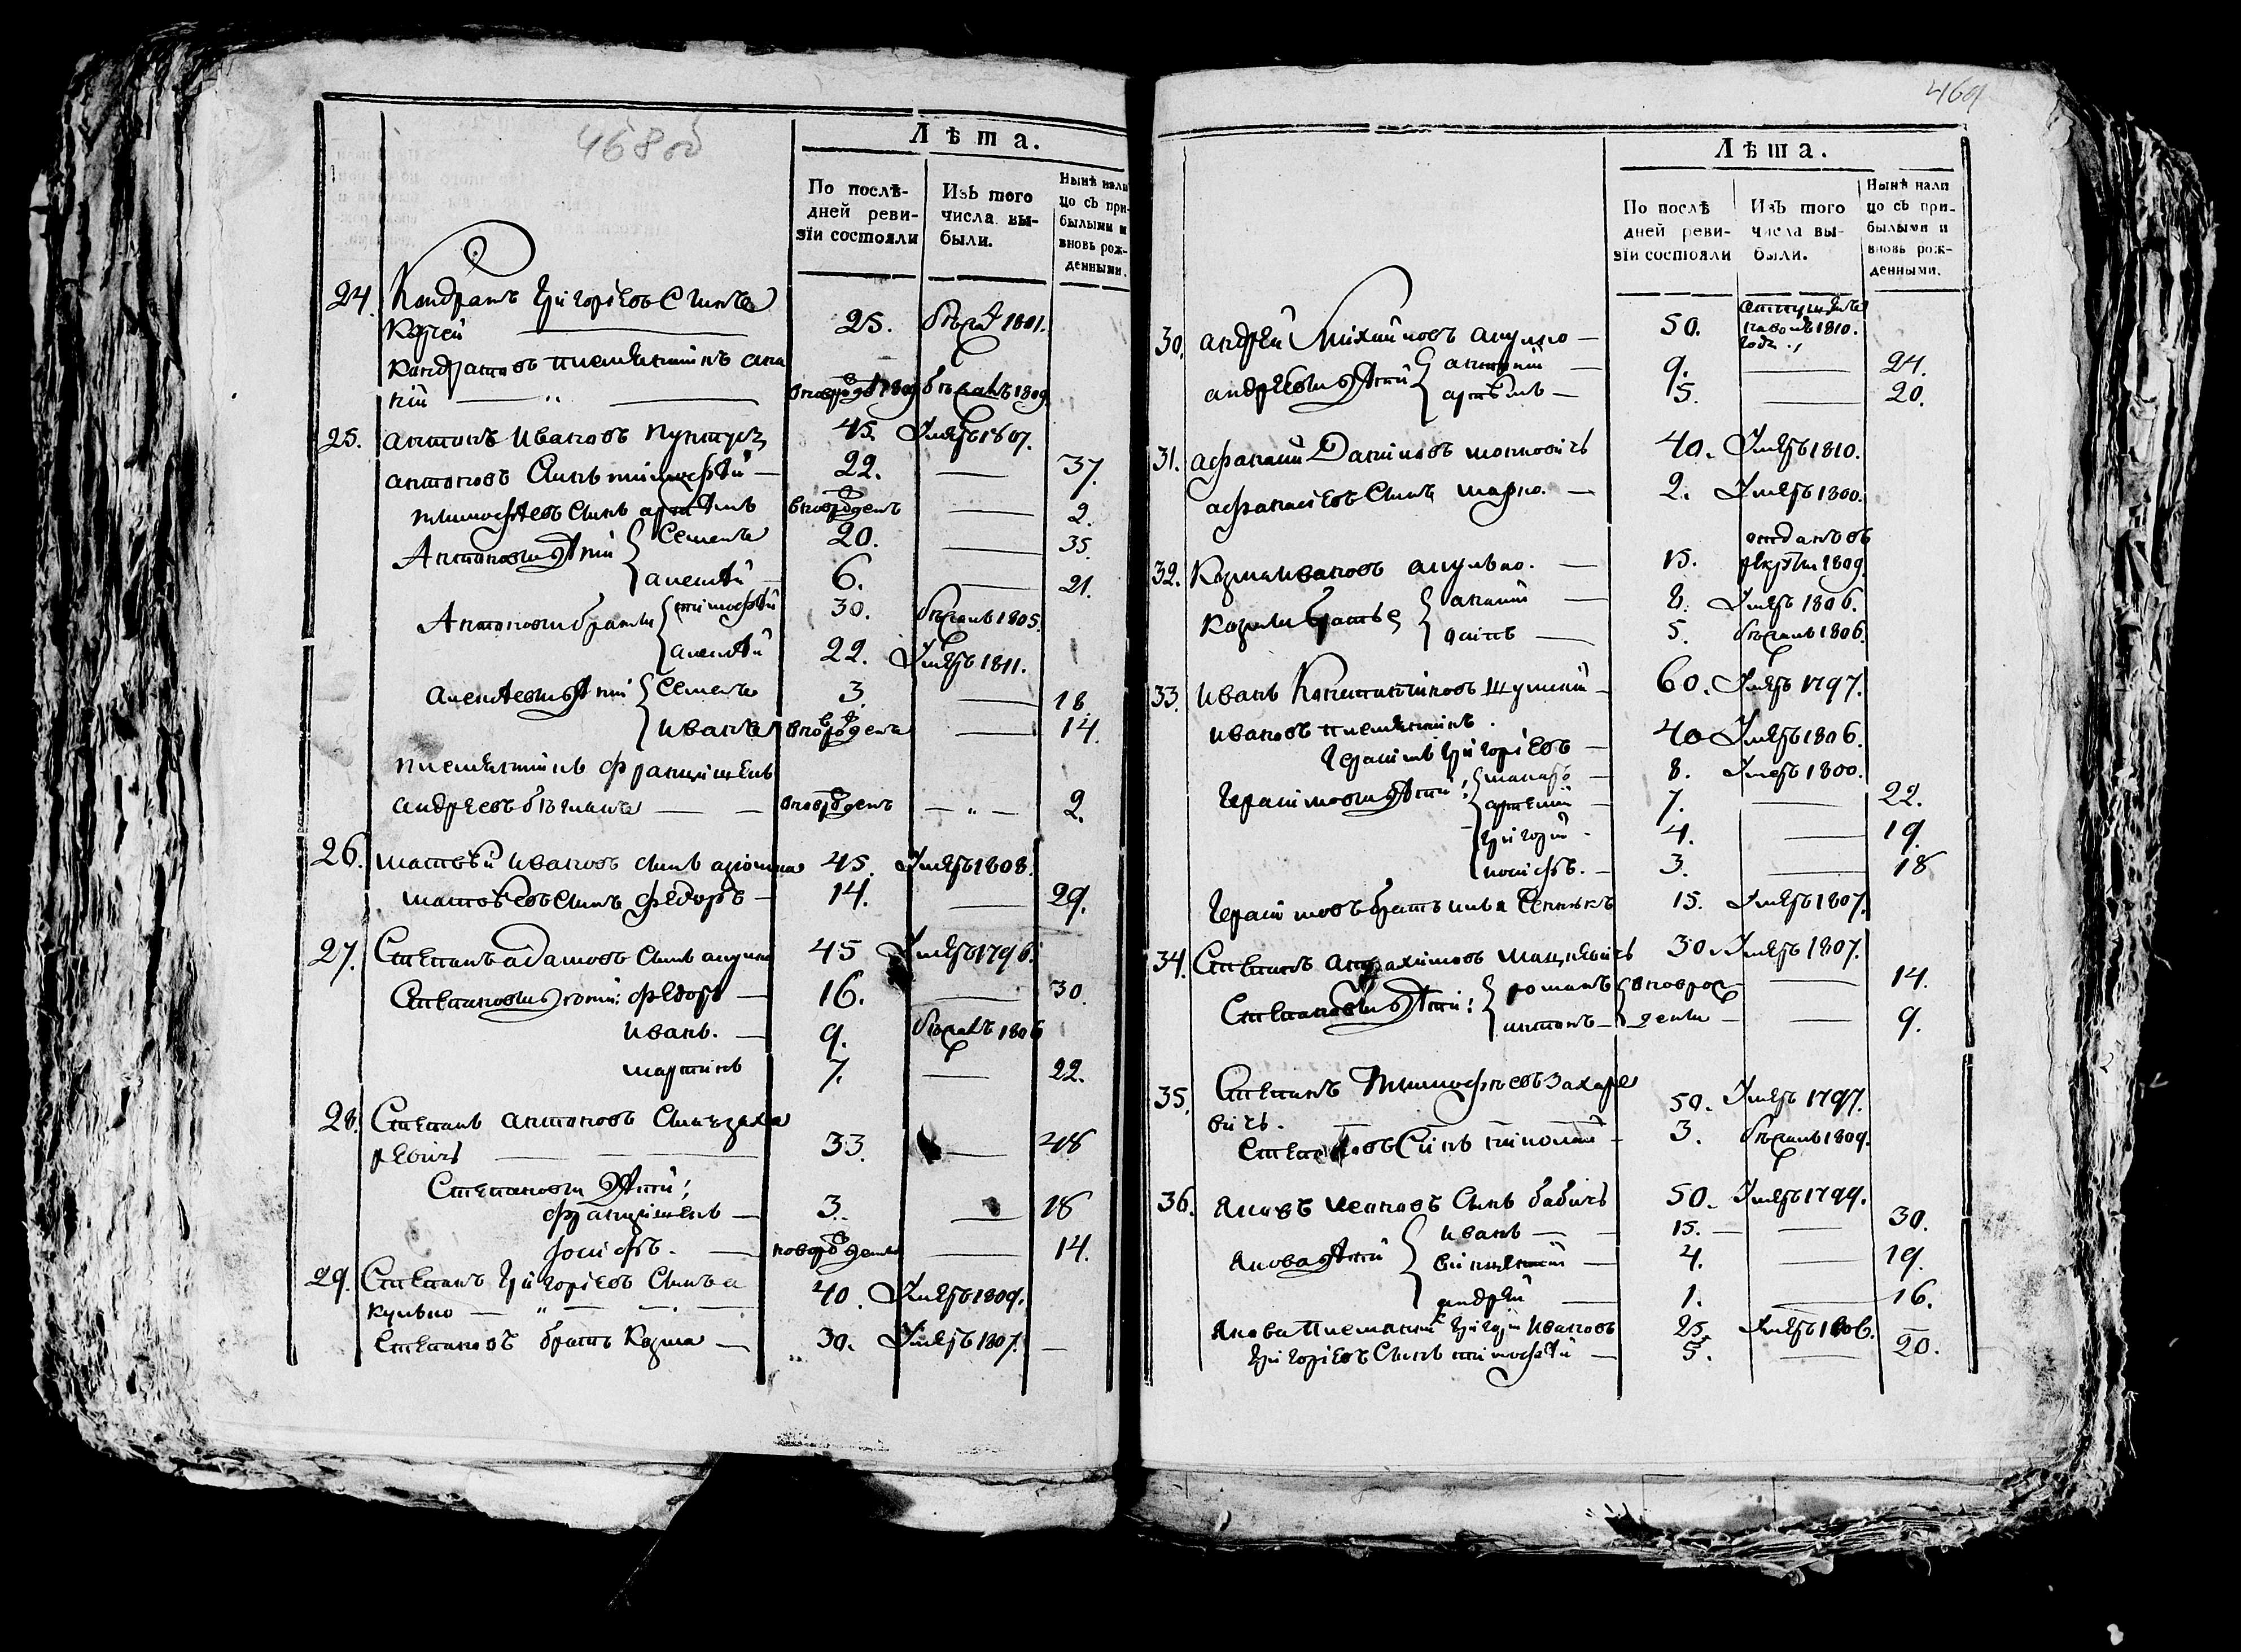 468 об
Лѣта.
По послѣ-
дней реви-
зїи состояли
Изъ того
числа вы-
были.
Нынѣ нали
цо съ при-
былыми и
вновь рож-
денными.
24. Кондратъ Григорїевъ Сынъ
25. бѣжалъ 1801.
Кондратовъ племянникъ
кїй бѣжалъ 1809.
25. Антонъ Ивановъ 45. Умеръ 1807.
Антоновъ Сынъ тимофѣй — 22. — 37.
тимофѣевъ Сынъ артемъ вноврожденъ — 2.
Антоновы дѣти Семенъ 20. — 35.
алексѣй — 6. — 21.
Антоновы братья тимофѣй 30. бѣжалъ 1805.
алексѣй 22. Умеръ 1811.
алексѣевы дѣти Семенъ 3. — 18.
иванъ вноврожденъ — 14.
племянникъ францишекъ
андреевъ вноврожденъ — „ — 2.
26. матвѣй ивановъ сынъ 45. Умеръ 1808.
матвѣевъ Сынъ федоръ — 14. — 29.
27. Степанъ адамовъ Сынъ 45 Умеръ 1796.
Степановы дѣти: федоръ — 16. — 30.
иванъ. — 9. бѣжалъ 1806
мартинъ 7. — 22.
28. Степанъ антоновъ Сынъ заха
ревичъ — 33. — 48
Степановы дѣти;
францишекъ — 3. — 18
їосифъ. — новорожденъ — 14.
29. Степанъ Григорїевъ Сынъ а
кулко — „ — 40. Умеръ 1809.
Степановъ братъ Козма — 30. Умеръ 1807. —
469
Лѣта.
По послѣ
дней реви-
зїи состояли
Изъ того
числа вы-
были.
Нынѣ нали
цо съ при-
былыми и
вновь рож-
денными.
30. андрей Михайловъ акулко — 50. 1810.
года.
андреевы дѣти антонїй — 9. — 24.
артемъ — 5. — 20.
31. афанасїй Даниловъ 40. Умеръ 1810.
афанасїевъ Сынъ марко. — 2. Умеръ 1800.
32. Козма ивановъ акулко. — 15. отданъ въ
рекруты 1809.
Козмы братья — 8. Умеръ 1806.
осипъ — 5. бѣжалъ 1806.
33. иванъ Константиновъ — 60. Умеръ 1797.
ивановъ племянникъ.
Герасимъ Григорїевъ — 40 Умеръ 1806.
Герасимовы дѣти: макаръ — 8. Умеръ 1800.
артемїй — 7. — 22.
григорїй — 4. — 19.
иосифъ. — 3. — 18
Герасимовъ братъ 15. Умеръ 1807.
34. Степанъ мацкевичъ 30. Умеръ 1807.
Степановы дѣти: романъ вноврож — 14.
антонъ — дены — 9.
35. Степанъ Тимофѣевъ Захаре
вичъ. 50. Умеръ 1797.
Степановъ Сынъ николай — 3. бѣжалъ 1809.
36. Яковъ ивановъ Сынъ бабичъ 50. Умеръ 1799.
Якова дѣти иванъ — 15. — 30.
викентїй — 4. — 19.
андрей — 1. — 16.
Якова племянникъ григорїй ивановъ 25. Умеръ 1806.
Григорїевъ Сынъ тимофѣй — 5. — 20.